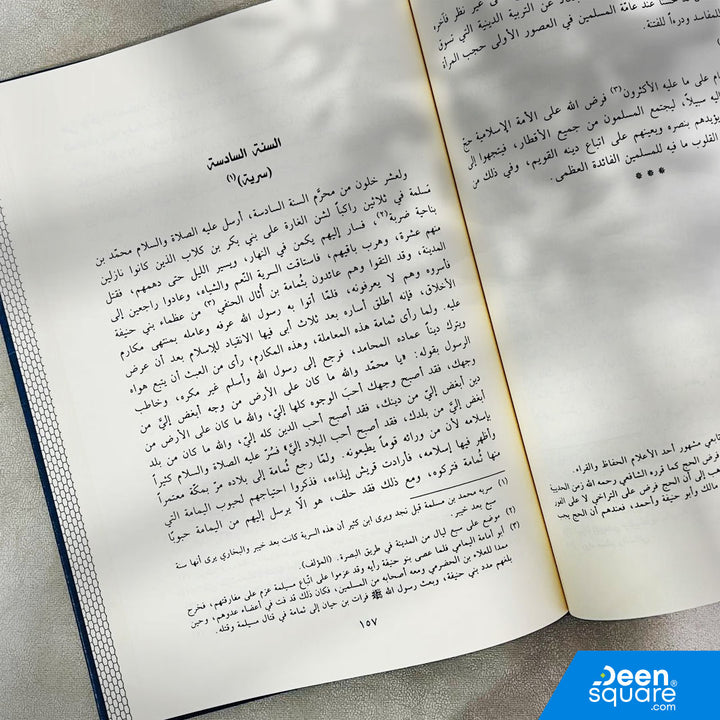 السنة السادسة
(سرية)(١)
ولعشر خلون من محرَّم السنة السادسة، أرسل عليه الصلاة والسلام محمّد بن
مَسلمة في ثلاثين راكباً لشن الغارة على بني بكر بن كلاب الذين كانوا نازلين
بناحية ضرية(٢)، فسار إليهم يكمن في النهار، ويسير الليل حتى دهمهم، فقتل
منهم عشرة، وهرب باقيهم، فاستاقت السرية النّعم والشياه، وعادوا راجعين إلى
المدينة، وقد التقوا وهم عائدون بثُمامة بن أُثال الحنفي(٣) من عظماء بني حنيفة
فأسروه وهم لا يعرفونه، فلمّا أتوا به رسول الله عرفه وعامله بمنتهى مكارم
الأخلاق، فإنه أطلق أساره بعد ثلاث أبى فيها الانقياد للإسلام بعد أن عرض
عليه. ولما رأى ثمامة هذه المعاملة، وهذه المكارم، رأى من العبث أن يتبع هواه
ويترك ديناً عماده المحامد، فرجع إلى رسول الله وأسلم غير مكره، وخاطب
الرسول بقوله: «يا محمّد والله ما كان على الأرض من وجه أبغض إليَّ من
وجهك، فقد أصبح وجهك أحبّ الوجوه كلها إليَّ، والله ما كان على الأرض من
دين أبغض إليَّ من دينك، فقد أصبح أحب الدين كله إليَّ، والله ما كان من بلد
أبغض إليَّ من بلدك، فقد أصبح أحب البلاد إليَّ» فسُرّ عليه الصلاة والسلام كثيراً
بإسلامه لأن من ورائه قوماً يطيعونه. ولمّا رجع ثُمامة إلى بلاده مرّ بمكّة معتمراً
وأظهر فيها إسلامه، فأرادت قريش إيذاءه، فذكروا احتياجهم لحبوب اليمامة التي
منها ثُمامة فتركوه، ومع ذلك فقد حلف، هو ألّا يرسل إليهم من اليمامة حبوباً
(١) سرية محمد بن مسلمة قبل نجد ويرى ابن كثير أن هذه السرية كانت بعد خيبر والبخاري يرى أنها سنة
سبع بعد خيبر.
(٢) موضع على سبع ليال من المدينة في طريق البصرة. (المؤلف).
(٣) أبو أمامة اليمامي فلما عصى بنو حنيفة رأيه وقد عزموا على اتباع مسيلمة عزم على مفارقتهم، فخرج
ممدا للعلاء بن الحضرمي ومعه أصحابه من المسلمين، فكان ذلك قد فت في أعضاء عدوهم، وحين
بلغهم مدد بني حنيفة، وبعث رسول الله ﷺ فرات بن حيان إلى ثمامة في قتال مسيلمة وقتله.
١٥٧
غير نظر فآخر،
عند عامّة المسلمين في العصور الأولى حجب المرأة
للمفاسد ودرءاً للفتنة.
على ما عليه الأكثرون(٣) فرض الله على الأمة الإسلامية حجّ
إليه سبيلاً، ليجتمع المسلمون من جميع الأقطار، فيتجهوا إلى
يؤيدهم بنصره ويعينهم على اتباع دينه القويم، وفي ذلك من
القلوب ما فيه للمسلمين الفائدة العظمى.
***
مشهور أحد الأعلام الحفاظ والقراء.
فرض الحج كما قرره الشافعي رحمه الله زمن الحديبية
إلى أن الحج فرض على التراخي لا على الفور
مالك وأبو حنيفة وأحمد، فعندهم أن الحج يجب
Deen
square®
.com